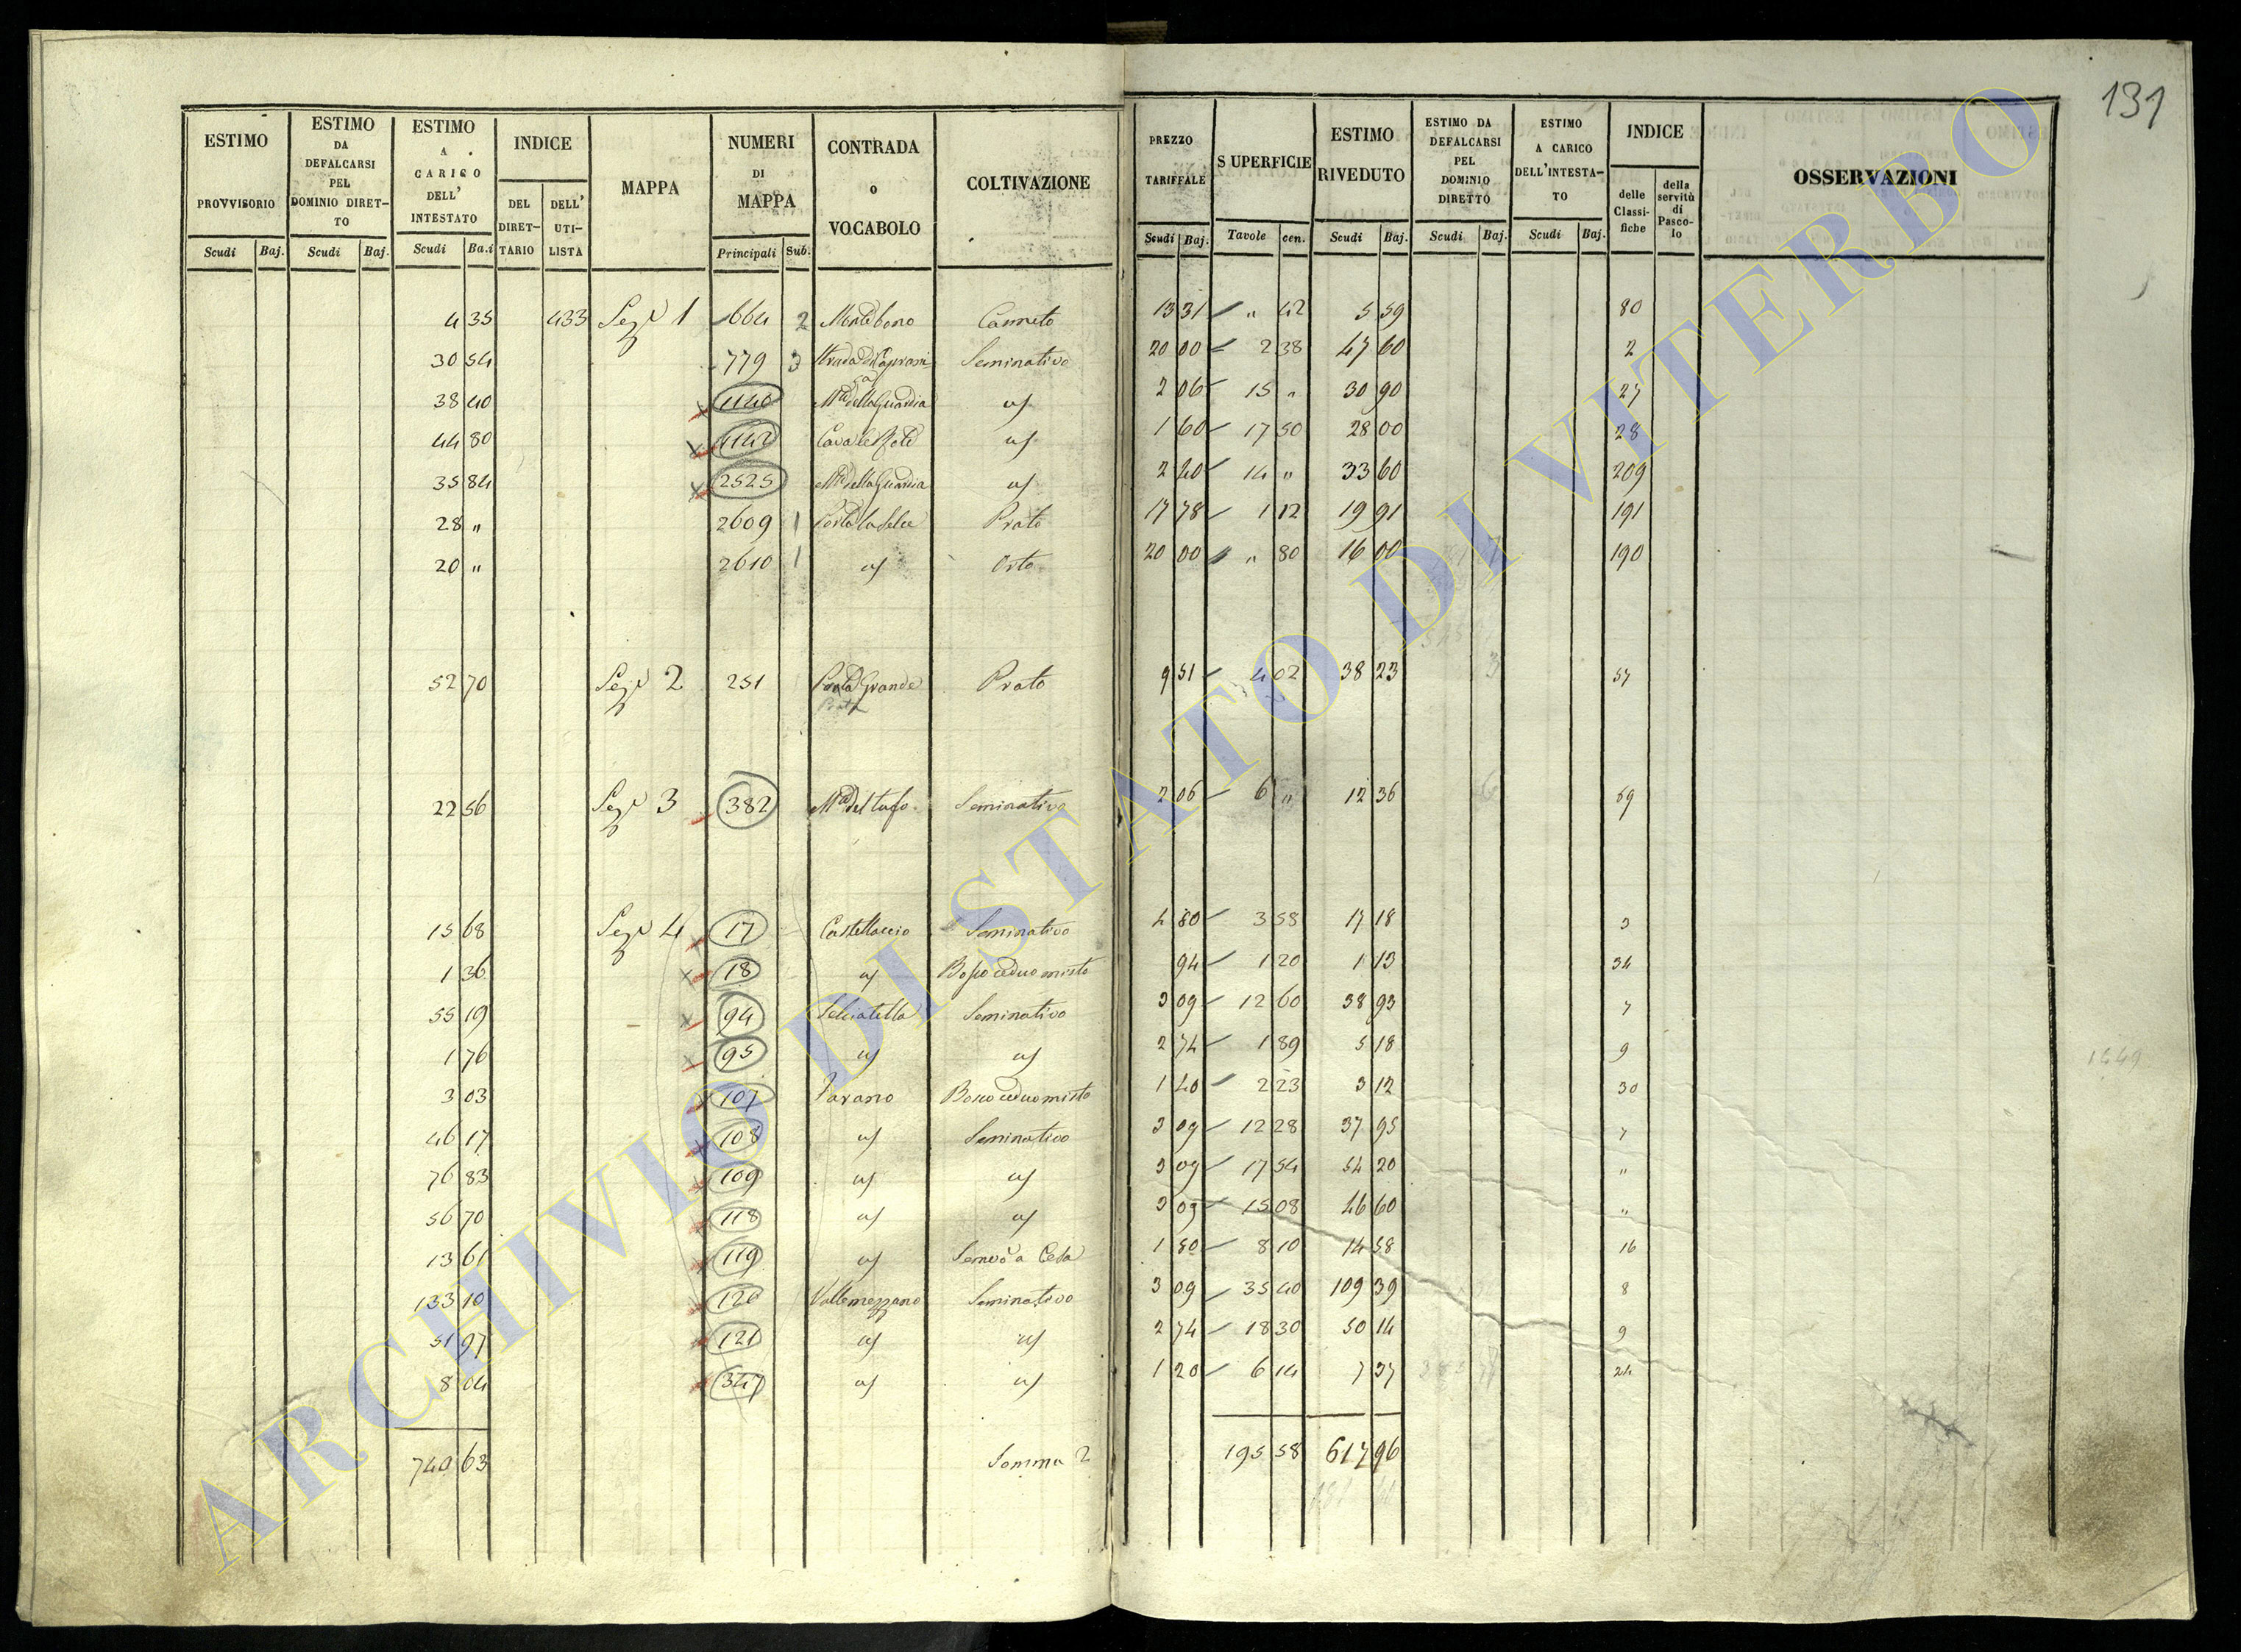 131
ESTIMO PROVVISORIO | ESTIMO DA DEFALCARSI PEL DOMINIO DIRET-TO | ESTIMO A CARICO DELL' INTESTATO | INDICE DEL DIRET-TARIO | DELL' UTI-LISTA | MAPPA | NUMERI DI MAPPA | CONTRADA o VOCABOLO | COLTIVAZIONE | PREZZO TARIFFALE | SUPERFICIE | ESTIMO RIVEDUTO | ESTIMO DA DEFALCARSI PEL DOMINIO DIRETTO | ESTIMO A CARICO DELL'INTESTA-TO | INDICE delle Classi-fiche | della servitù di Pasco-lo | OSSERVAZIONI
Scudi | Baj. | Scudi | Baj. | Scudi | Ba.i | Principali | Sub. | Scudi | Baj. | Tavole | cen. | Scudi | Baj. | Scudi | Baj. | Scudi | Baj.
4 35 | 433 | Sez. 1 | 664 | 2 | Montebono | Canneto | 13 31 | " 42 | 5 59 | 80
30 54 | 779 | 3 | Strada di | Seminativo | 20 00 | 2 38 | 47 60 | 2
38 40 | 1140 | Mna della Guardia | id | 2 06 | 15 " | 30 90 | 27
44 80 | 1142 | id | 1 60 | 17 50 | 28 00 | 28
35 84 | 2525 | Mna della Guardia | id | 2 40 | 14 " | 33 60 | 209
28 " | 2609 | 1 | Prato | 17 78 | 1 12 | 19 91 | 191
20 " | 2610 | 1 | id | Orto | 20 00 | " 80 | 16 00 | 190
52 70 | Sez. 2 | 251 | Porta Grande | Prato | 9 51 | 4 02 | 38 23 | 57
22 56 | Sez. 3 | 382 | Mna del tufo | Seminativo | 2 06 | 6 " | 12 36 | 69
15 68 | Sez. 4 | 17 | Castellaccio | Seminativo | 4 80 | 3 58 | 17 18 | 3
1 36 | 18 | id | Bosco ceduo misto | 94 | 1 20 | 1 13 | 34
55 19 | 94 | Selciatella | Seminativo | 3 09 | 12 60 | 38 93 | 7
1 76 | 95 | id | id | 2 74 | 1 89 | 5 18 | 9
3 03 | 107 | Tavano | Bosco ceduo misto | 1 40 | 2 23 | 3 12 | 30
46 17 | 108 | id | Seminativo | 3 09 | 12 28 | 37 95 | 7
76 83 | 109 | id | id | 3 09 | 17 54 | 54 20 | "
56 70 | 118 | id | id | 3 09 | 15 08 | 46 60 | "
13 61 | 119 | id | Semvo a Cesa | 1 80 | 8 10 | 14 58 | 16
133 10 | 120 | Vallemezzano | Seminativo | 3 09 | 35 40 | 109 39 | 8
51 97 | 121 | id | id | 2 74 | 18 30 | 50 14 | 9
8 04 | 347 | id | id | 1 20 | 6 14 | 7 37 | 24
740 63 | Somma 2 | 195 58 | 617 96
1449
ARCHIVIO DI STATO DI VITERBO